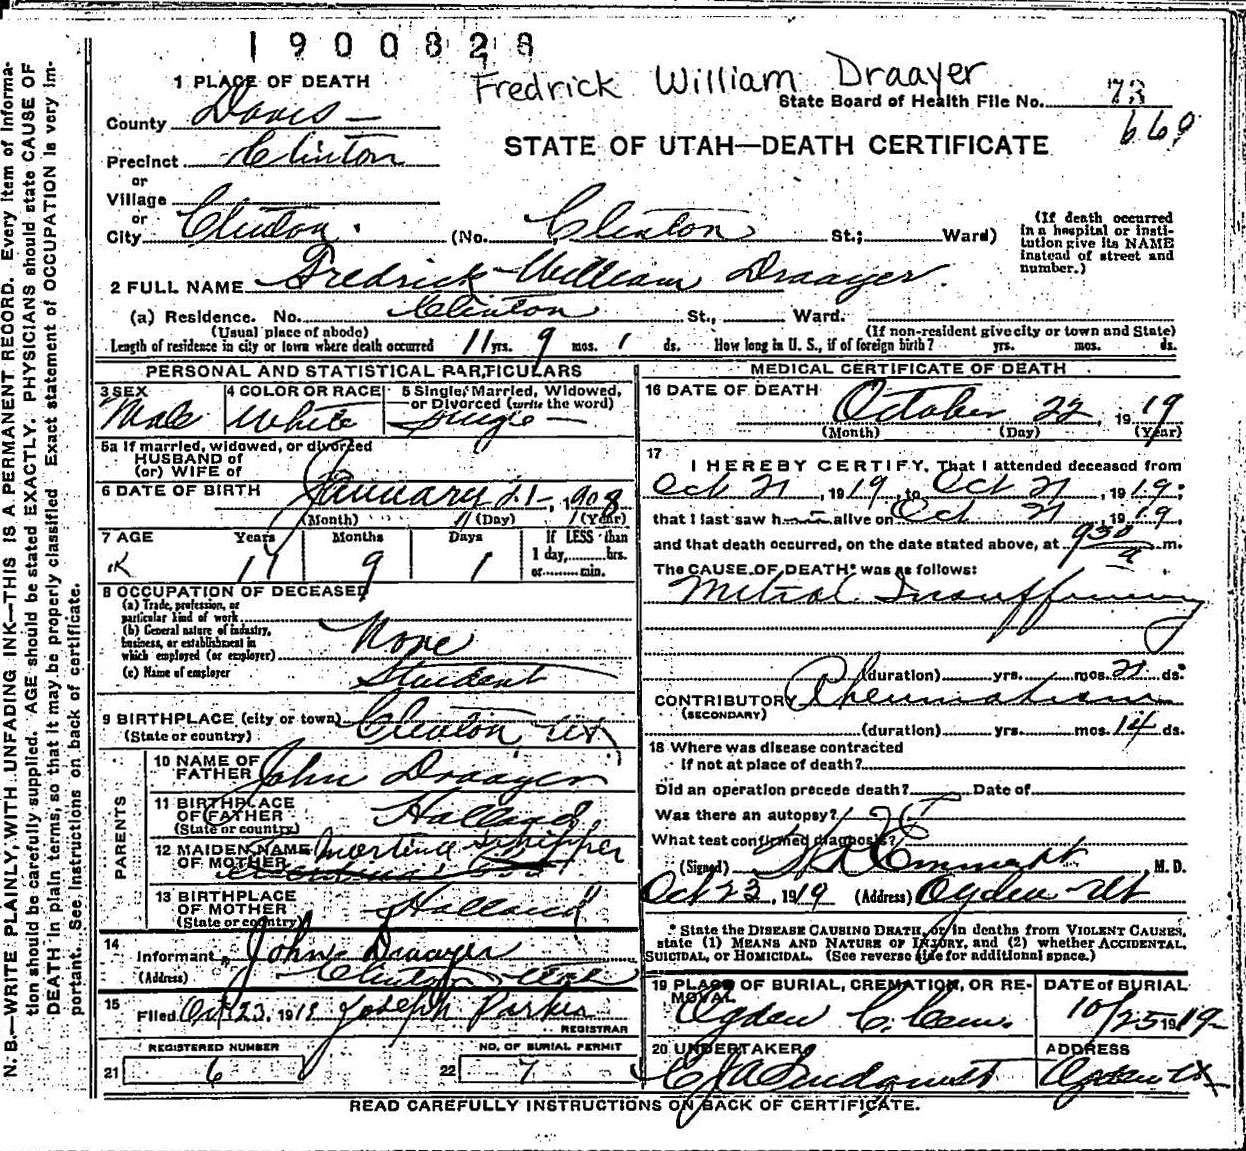 1900828
Fredrick William Draayer
1 PLACE OF DEATH
State Board of Health File No. 73
County Davis
669
STATE OF UTAH—DEATH CERTIFICATE
Precinct Clinton
or
Village
or
City Clinton. (No. Clinton St.; Ward)
(If death occurred in a hospital or insti-
tution give its NAME
instead of street and
number.)
2 FULL NAME Fredrick William Draayer.
(a) Residence. No. Clinton St., Ward.
(Usual place of abode) (If non-resident give city or town and State)
Length of residence in city or town where death occurred 11 yrs. 9 mos. 1 ds. How long in U. S., if of foreign birth? yrs. mos. ds.
PERSONAL AND STATISTICAL PARTICULARS
3 SEX Male
4 COLOR OR RACE White
5 Single, Married, Widowed,
or Divorced (write the word)
Single
5a If married, widowed, or divorced
HUSBAND of
(or) WIFE of
6 DATE OF BIRTH January 21, 1908
(Month) (Day) (Year)
7 AGE Years Months Days If LESS than
1 day, hrs.
or min.
11 9 1
8 OCCUPATION OF DECEASED
(a) Trade, profession, or
particular kind of work
(b) General nature of industry,
business, or establishment in
which employed (or employer) None
(c) Name of employer Student
9 BIRTHPLACE (city or town) Clinton Ut
(State or country)
PARENTS
10 NAME OF
FATHER John Draayer
11 BIRTHPLACE
OF FATHER Holland
(State or country)
12 MAIDEN NAME
OF MOTHER Martina Schipper
13 BIRTHPLACE
OF MOTHER Holland
(State or country)
14
Informant John Draayer
(Address) Clinton Utah
15
Filed Oct 23, 1919 Joseph Parker
REGISTRAR
REGISTERED NUMBER
21 6
NO. OF BURIAL PERMIT
22 7
MEDICAL CERTIFICATE OF DEATH
16 DATE OF DEATH October 22, 1919
(Month) (Day) (Year)
17
I HEREBY CERTIFY, That I attended deceased from
Oct 21, 1919, to Oct 21, 1919;
that I last saw him alive on Oct 21, 1919,
and that death occurred, on the date stated above, at 9 30 a m.
The CAUSE OF DEATH* was as follows:
Mitral Insufficiency
(duration) yrs. mos. 21 ds.
CONTRIBUTORY Rheumatism
(SECONDARY)
(duration) yrs. mos. 14 ds.
18 Where was disease contracted
If not at place of death?
Did an operation precede death? Date of
Was there an autopsy?
What test confirmed diagnosis?
(Signed) M. D.
Oct 23, 1919 (Address) Ogden Ut
* State the DISEASE CAUSING DEATH, or in deaths from VIOLENT CAUSES,
state (1) MEANS AND NATURE OF INJURY, and (2) whether ACCIDENTAL,
SUICIDAL, or HOMICIDAL. (See reverse side for additional space.)
19 PLACE OF BURIAL, CREMATION, OR RE-
MOVAL
Ogden C. Cem.
DATE of BURIAL
10/25 1919
20 UNDERTAKER
ADDRESS
Ogden Ut
READ CAREFULLY INSTRUCTIONS ON BACK OF CERTIFICATE.
N. B.—WRITE PLAINLY, WITH UNFADING INK—THIS IS A PERMANENT RECORD. Every item of informa-
tion should be carefully supplied. AGE should be stated EXACTLY. PHYSICIANS should state CAUSE OF
DEATH in plain terms, so that it may be properly classified. Exact statement of OCCUPATION is very im-
portant. See instructions on back of certificate.